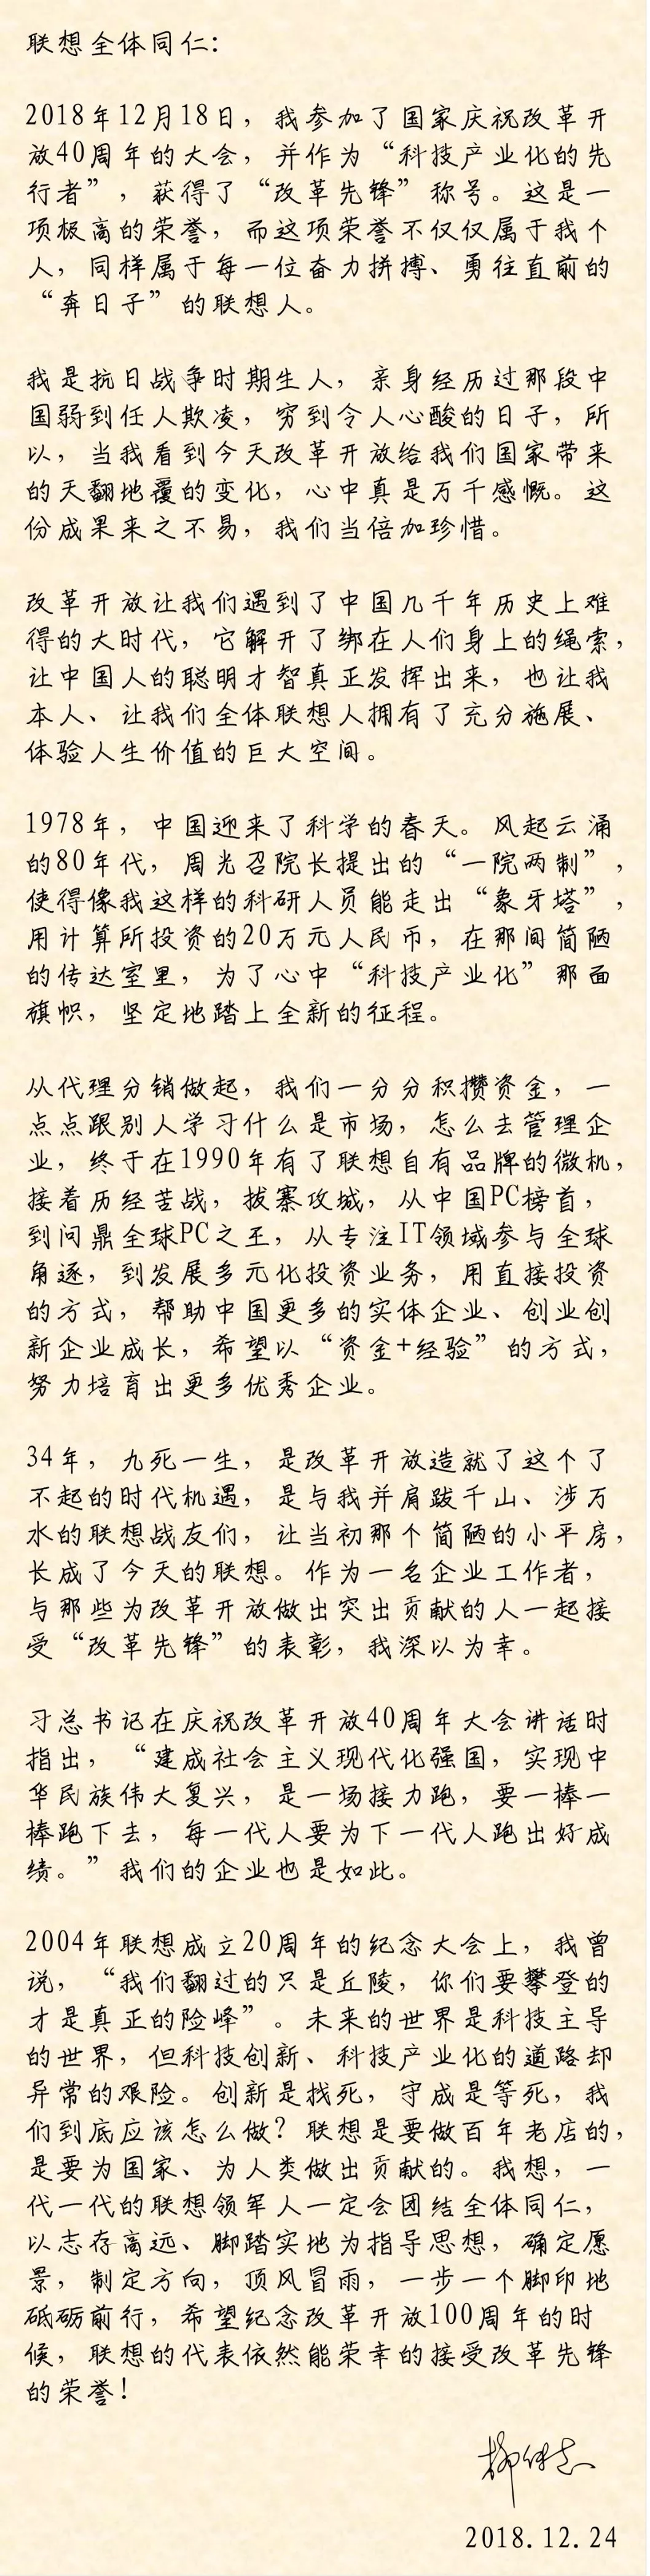 联想全体同仁：
2018年12月18日，我参加了国家庆祝改革开
放40周年的大会，并作为“科技产业化的先
行者”，获得了“改革先锋”称号。这是一
项极高的荣誉，而这项荣誉不仅仅属于我个
人，同样属于每一位奋力拼搏、勇往直前的
“奔日子”的联想人。
我是抗日战争时期生人，亲身经历过那段中
国弱到任人欺凌，穷到令人心酸的日子，所
以，当我看到今天改革开放给我们国家带来
的天翻地覆的变化，心中真是万千感慨。这
份成果来之不易，我们当倍加珍惜。
改革开放让我们遇到了中国几千年历史上难
得的大时代，它解开了绑在人们身上的绳索，
让中国人的聪明才智真正发挥出来，也让我
本人、让我们全体联想人拥有了充分施展、
体验人生价值的巨大空间。
1978年，中国迎来了科学的春天。风起云涌
的80年代，周光召院长提出的“一院两制”，
使得像我这样的科研人员能走出“象牙塔”，
用计算所投资的20万元人民币，在那间简陋
的传达室里，为了心中“科技产业化”那面
旗帜，坚定地踏上全新的征程。
从代理分销做起，我们一分分积攒资金，一
点点跟别人学习什么是市场，怎么去管理企
业，终于在1990年有了联想自有品牌的微机，
接着历经苦战，拔寨攻城，从中国PC榜首，
到问鼎全球PC之王，从专注IT领域参与全球
角逐，到发展多元化投资业务，用直接投资
的方式，帮助中国更多的实体企业、创业创
新企业成长，希望以“资金+经验”的方式，
努力培育出更多优秀企业。
34年，九死一生，是改革开放造就了这个了
不起的时代机遇，是与我并肩跋千山、涉万
水的联想战友们，让当初那个简陋的小平房，
长成了今天的联想。作为一名企业工作者，
与那些为改革开放做出突出贡献的人一起接
受“改革先锋”的表彰，我深以为幸。
习总书记在庆祝改革开放40周年大会讲话时
指出，“建成社会主义现代化强国，实现中
华民族伟大复兴，是一场接力跑，要一棒一
棒跑下去，每一代人要为下一代人跑出好成
绩。”我们的企业也是如此。
2004年联想成立20周年的纪念大会上，我曾
说，“我们翻过的只是丘陵，你们要攀登的
才是真正的险峰”。未来的世界是科技主导
的世界，但科技创新、科技产业化的道路却
异常的艰险。创新是找死，守成是等死，我
们到底应该怎么做？联想是要做百年老店的，
是要为国家、为人类做出贡献的。我想，一
代一代的联想领军人一定会团结全体同仁，
以志存高远、脚踏实地为指导思想，确定愿
景，制定方向，顶风冒雨，一步一个脚印地
砥砺前行，希望纪念改革开放100周年的时
候，联想的代表依然能荣幸的接受改革先锋
的荣誉！
柳传志
2018.12.24